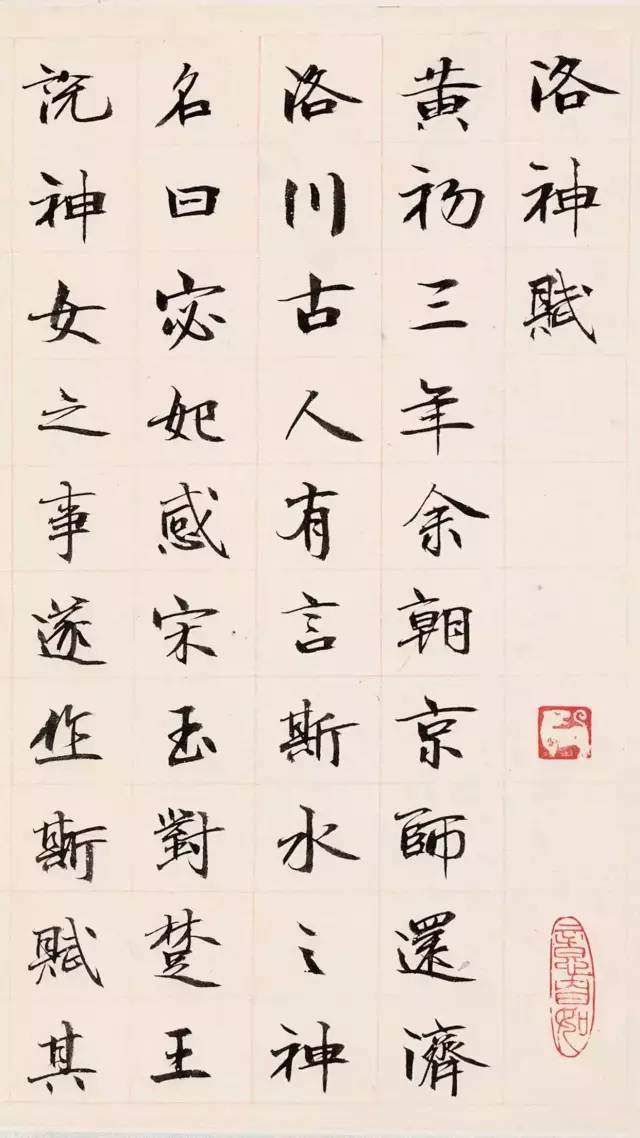 洛神賦
黄初三年余朝京師還濟
洛川古人有言斯水之神
名曰宓妃感宋玉對楚王
說神女之事遂作斯賦其